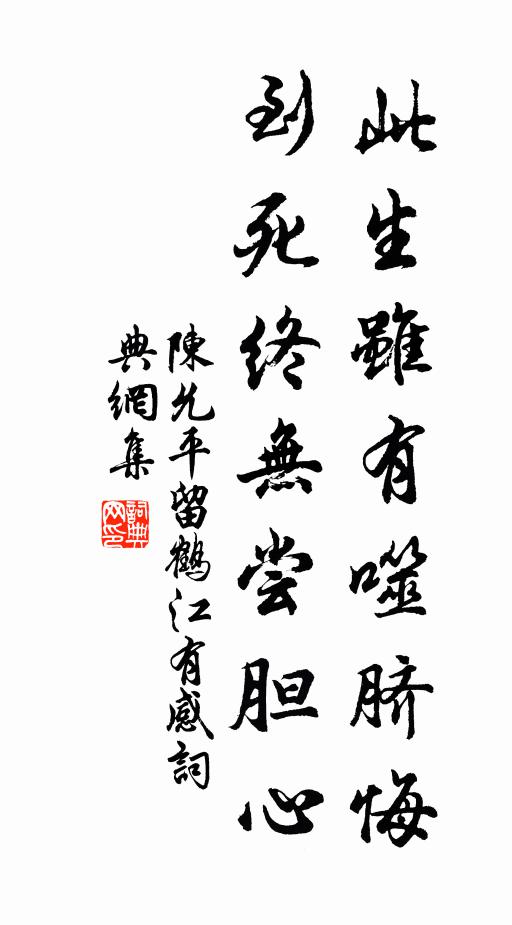 此生雖有噬脐悔
到死終無尝胆心
陳允平留鶴江有感詞
典網集
詞典网印